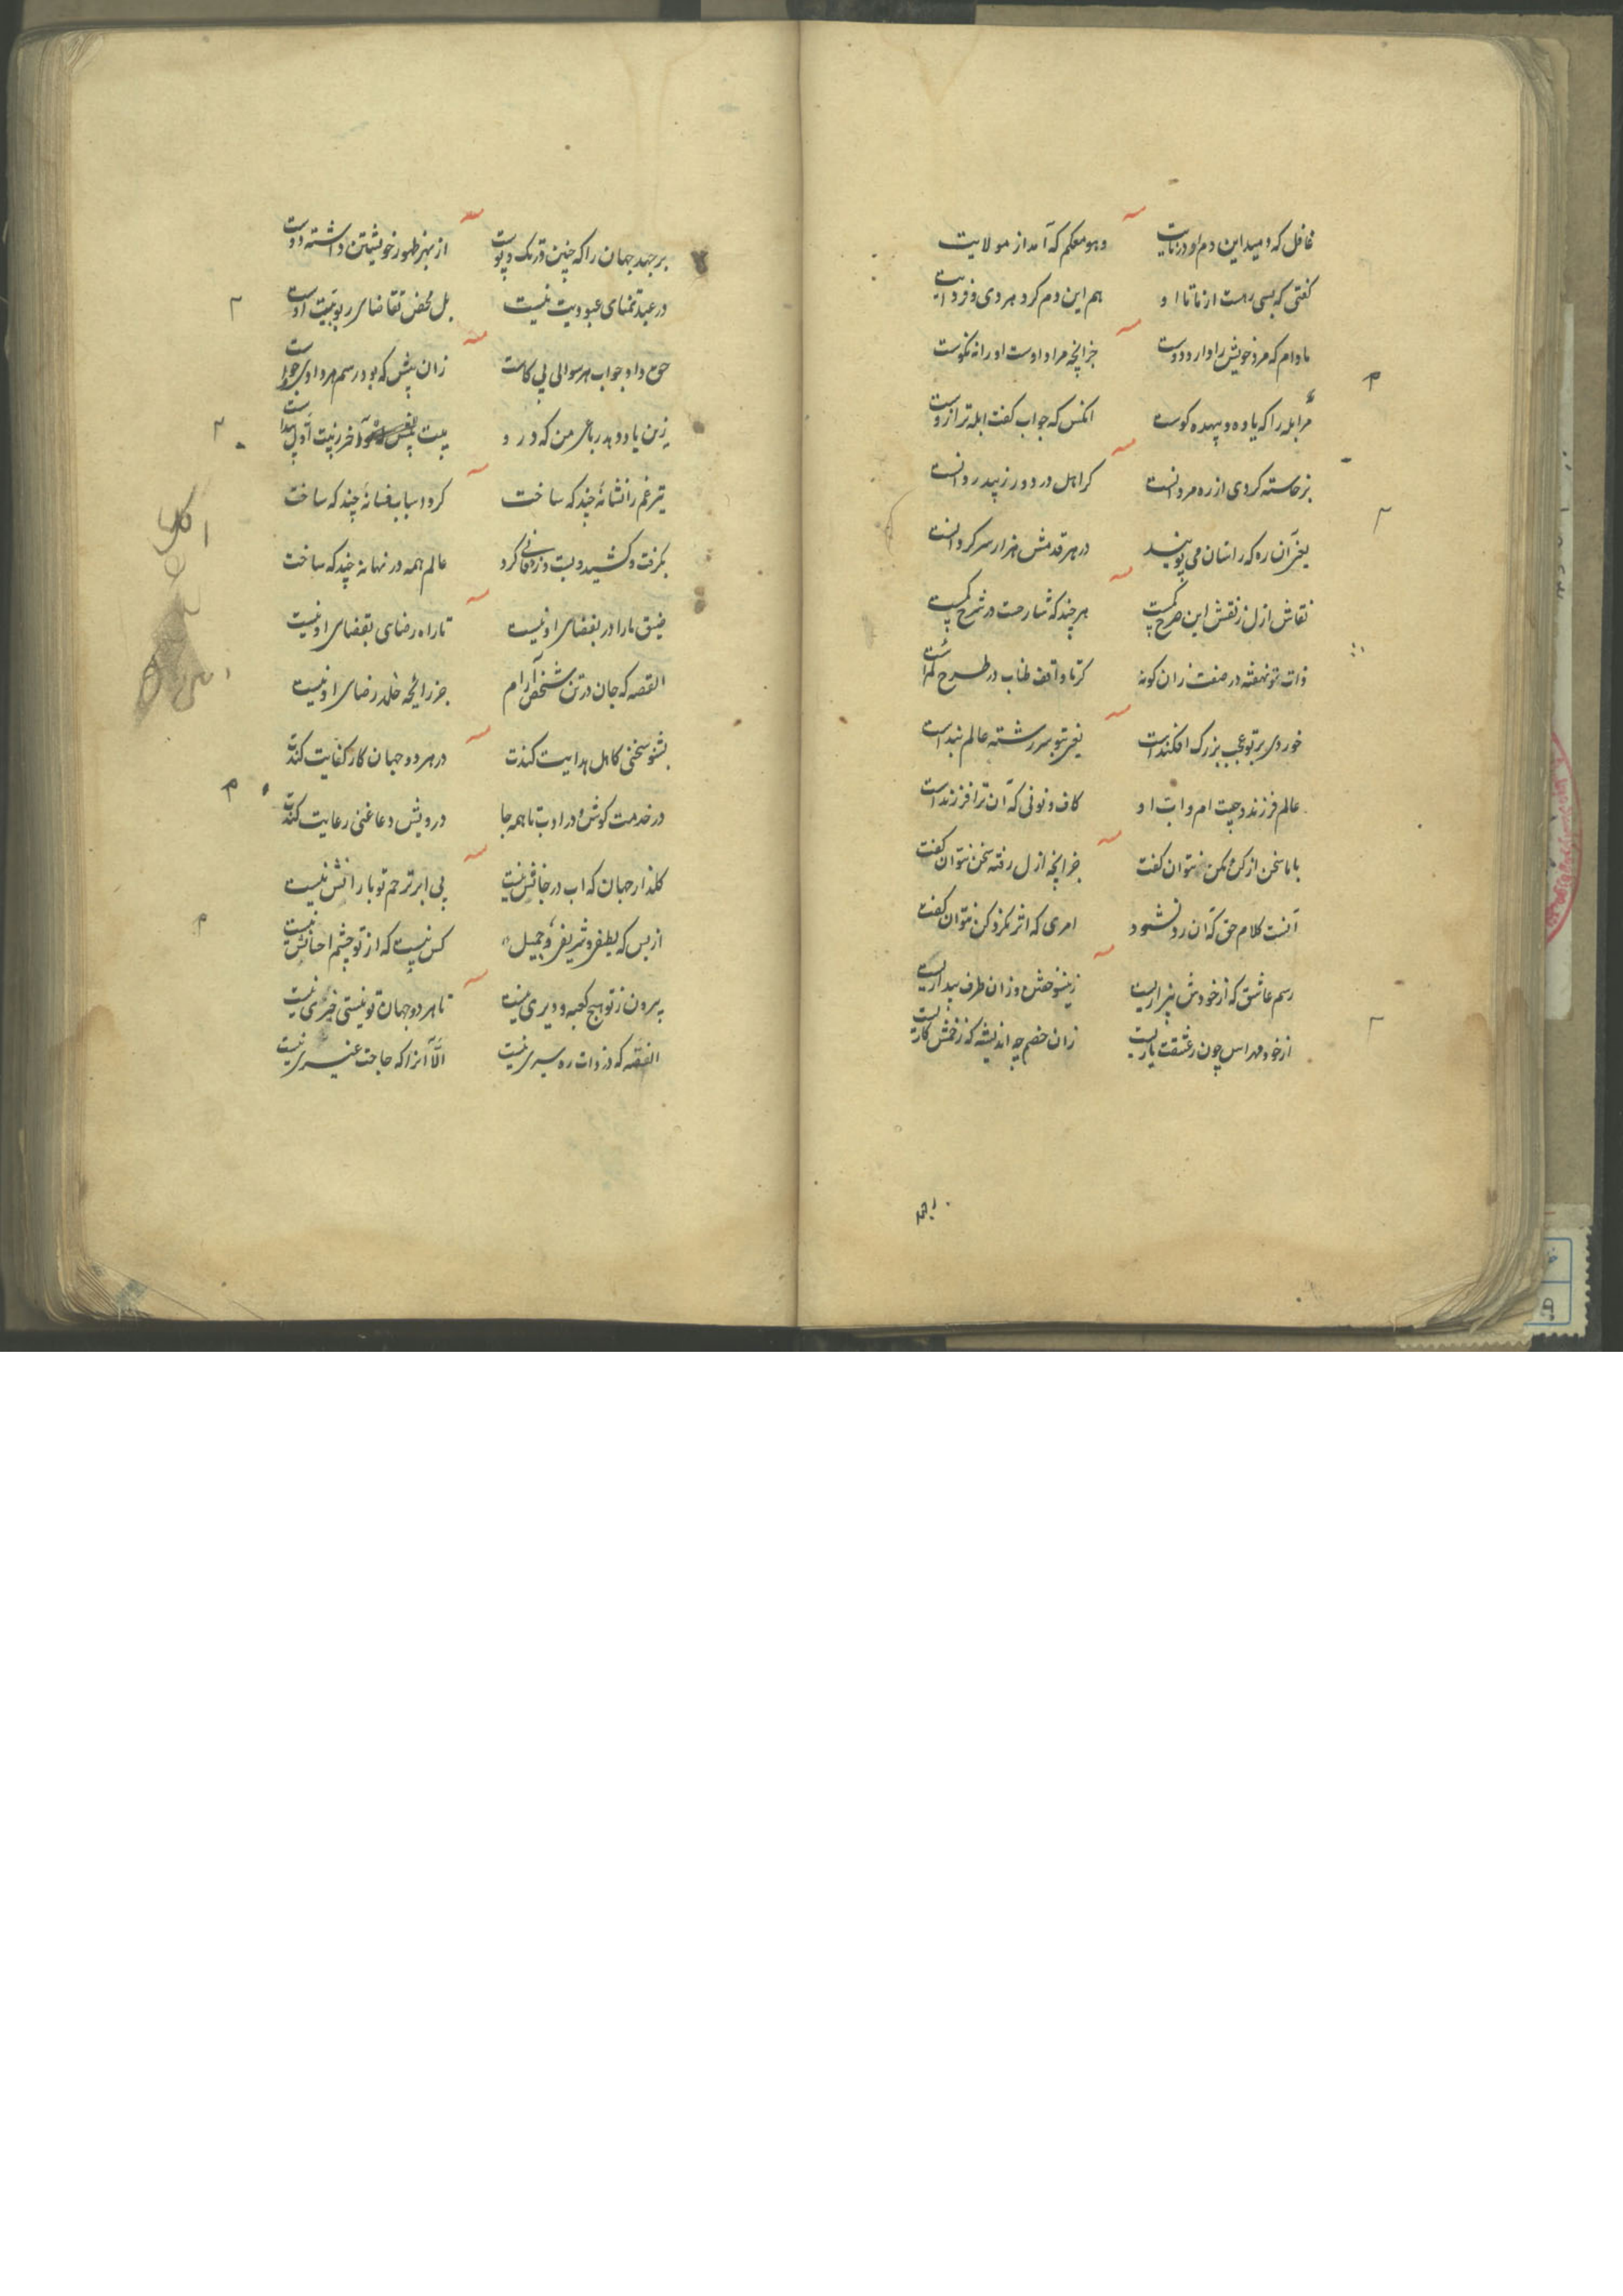 غافل که دمید این دم او در نایت    وهو معکم که آمد از مولایت
گفتی که بسی رهست از ما تا او    هم این دم کرد هر دی و فردایت
مادام که مرد خویش را دارد دوست    جز آنچه مراد اوست او را نه نکوست
مر ابله را که یاوه و بیهده گوست    انکس که جواب گفت ابله تر ازوست
برخاسته گردی از ره مردانست    کراهل درد ورز پیدردانست
یعنی آن ره که راستان می پویند    در هر قدمش هزار سرگردانست
نقاش ازل ز نقش این طرح    هر چند که شارحت در شرح
ذات تو نهفته در صفت زان گونه    طناب در طرح
خوردی بر تو عجب بزرگ افکنداست    یعنی بتو سر رشته عالم بنداست
عالم فرزند و چیت ام و اب او    کاف و نونی که آن ترا فرزنداست
با ما سخن از کن و مکن نتوان گفت    جز آنچه ازل رفته سخن نتوان گفت
آنست کلام حق که آن رد نشود    امری که اثر نکرد کن نتوان گفت
رسم عاشق که از خودش بیزاریست    زینسو خفتن وز آن طرف بیداریست
از خود مهراس چون ز عشقت یاریست    زان خصم چه اندیشه که زخمش کاریست
بر جهد جهان را که چنین در تک و پوست    از بهر ظهور خویشتن داشته دوست
در عبد تمنای عبودیت نیست    بل محض تقاضای ربوبیت اوست
حق داد جواب هر سوالی بی کاست    زان پیش که بود رسم هر دادی خواست
زین یاد دهد رباعی من که درو    بیت آخر ز بیت اول پیداست
تیر غم را نشانه چند که ساخت    کرد اسباب فسانه چند که ساخت
بگرفت و کشید و بست و زندانی کرد    عالم همه در نهانه چند که ساخت
ضیق ما را در بفضای او نیست    تا راه رضای بقضای او نیست
القصه که جان در تن شخص آرام    جز رائحه خلد رضای او نیست
بشنو سخنی کاهل هدایت کندت    در هر دو جهان کار کفایت کندت
در خدمت کوش و در ادب تا همه جا    درویش دعا غنی رعایت کندت
گلزار جهان که اب در خانش نیست    بی ابر ترحم تو بارانش نیست
از بس که لطیفی و شریفی و جمیل    کس نیست که از تو چشم احسانش نیست
بیرون ز تو هیچ کعبه و دیری نیست    تا هر دو جهان تو نیستی خیری نیست
القصه که در ذات ره سیری نیست    الّا آنرا که حاجت غیری نیست